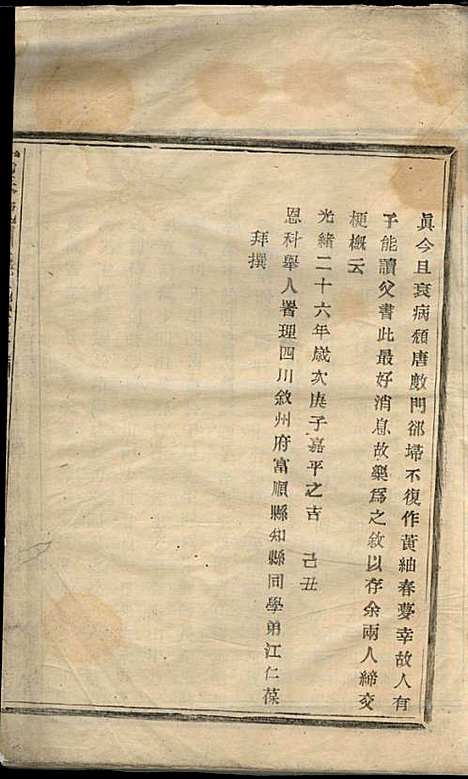 眞今且衰病頹唐敝門卻埽不復作黃紬春夢幸故人有
子能讀父書此最好消息故樂爲之敘以存余兩人締交
梗概云
光緒二十六年歲次庚子嘉平之吉　己丑
恩科舉人署理四川敘州府富順縣知縣同學弟江仁葆
拜撰